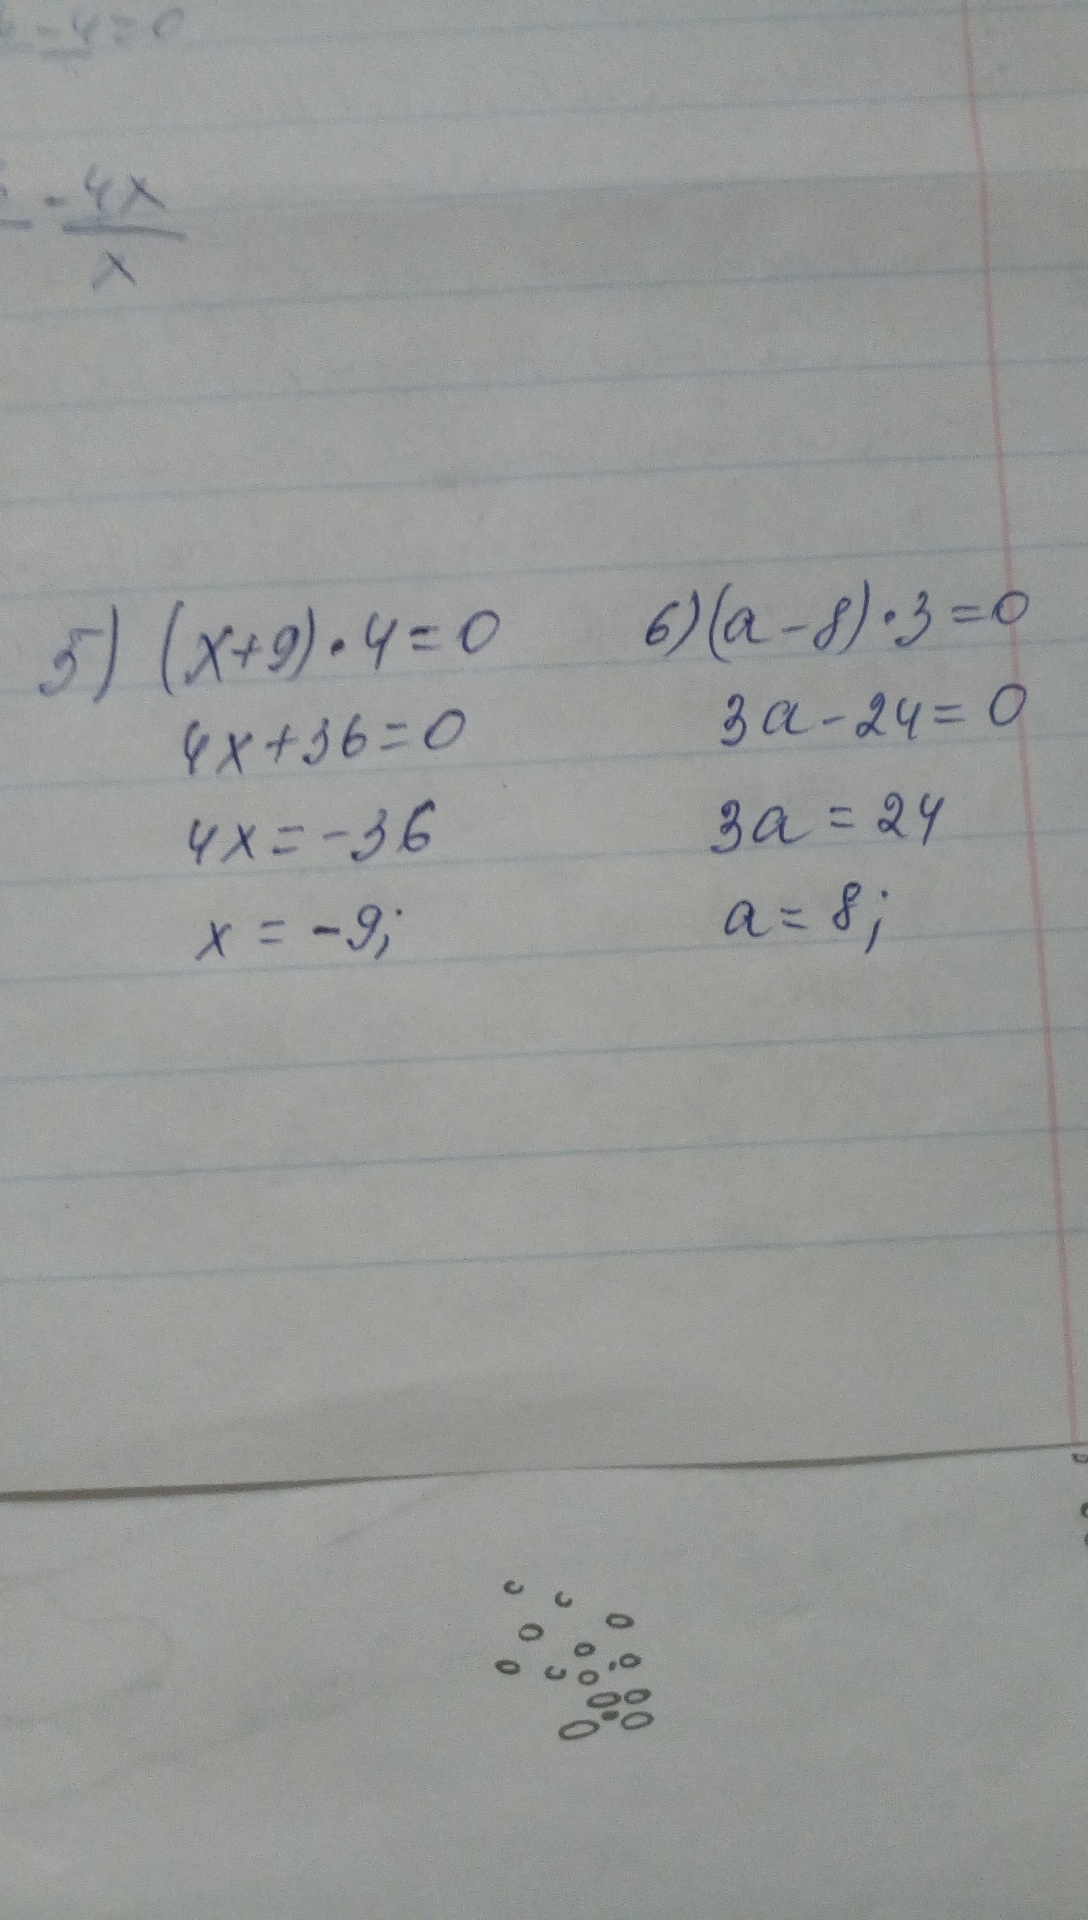 -4=0
-4x
x
5) (x+9)·4=0
4x+36=0
4x=-36
x=-9;
6)(a-8)·3=0
3a-24=0
3a=24
a=8;